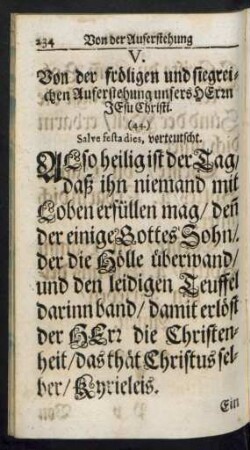 234 Von der Auferstehung
V.
Von der fröligen und siegrei-
chen Auferstehung unsers HErrn
JEsu Christi.
(44.)
Salve festa dies, verteutscht.
ALso heilig ist der Tag/
daß ihn niemand mit
Loben erfüllen mag/ deñ
der einige Gottes Sohn/
der die Hölle überwand/
und den leidigen Teuffel
darinn band/ damit erlöst
der HErr die Christen-
heit/ das thät Christus sel-
ber/ Kyrieleis.
Ein